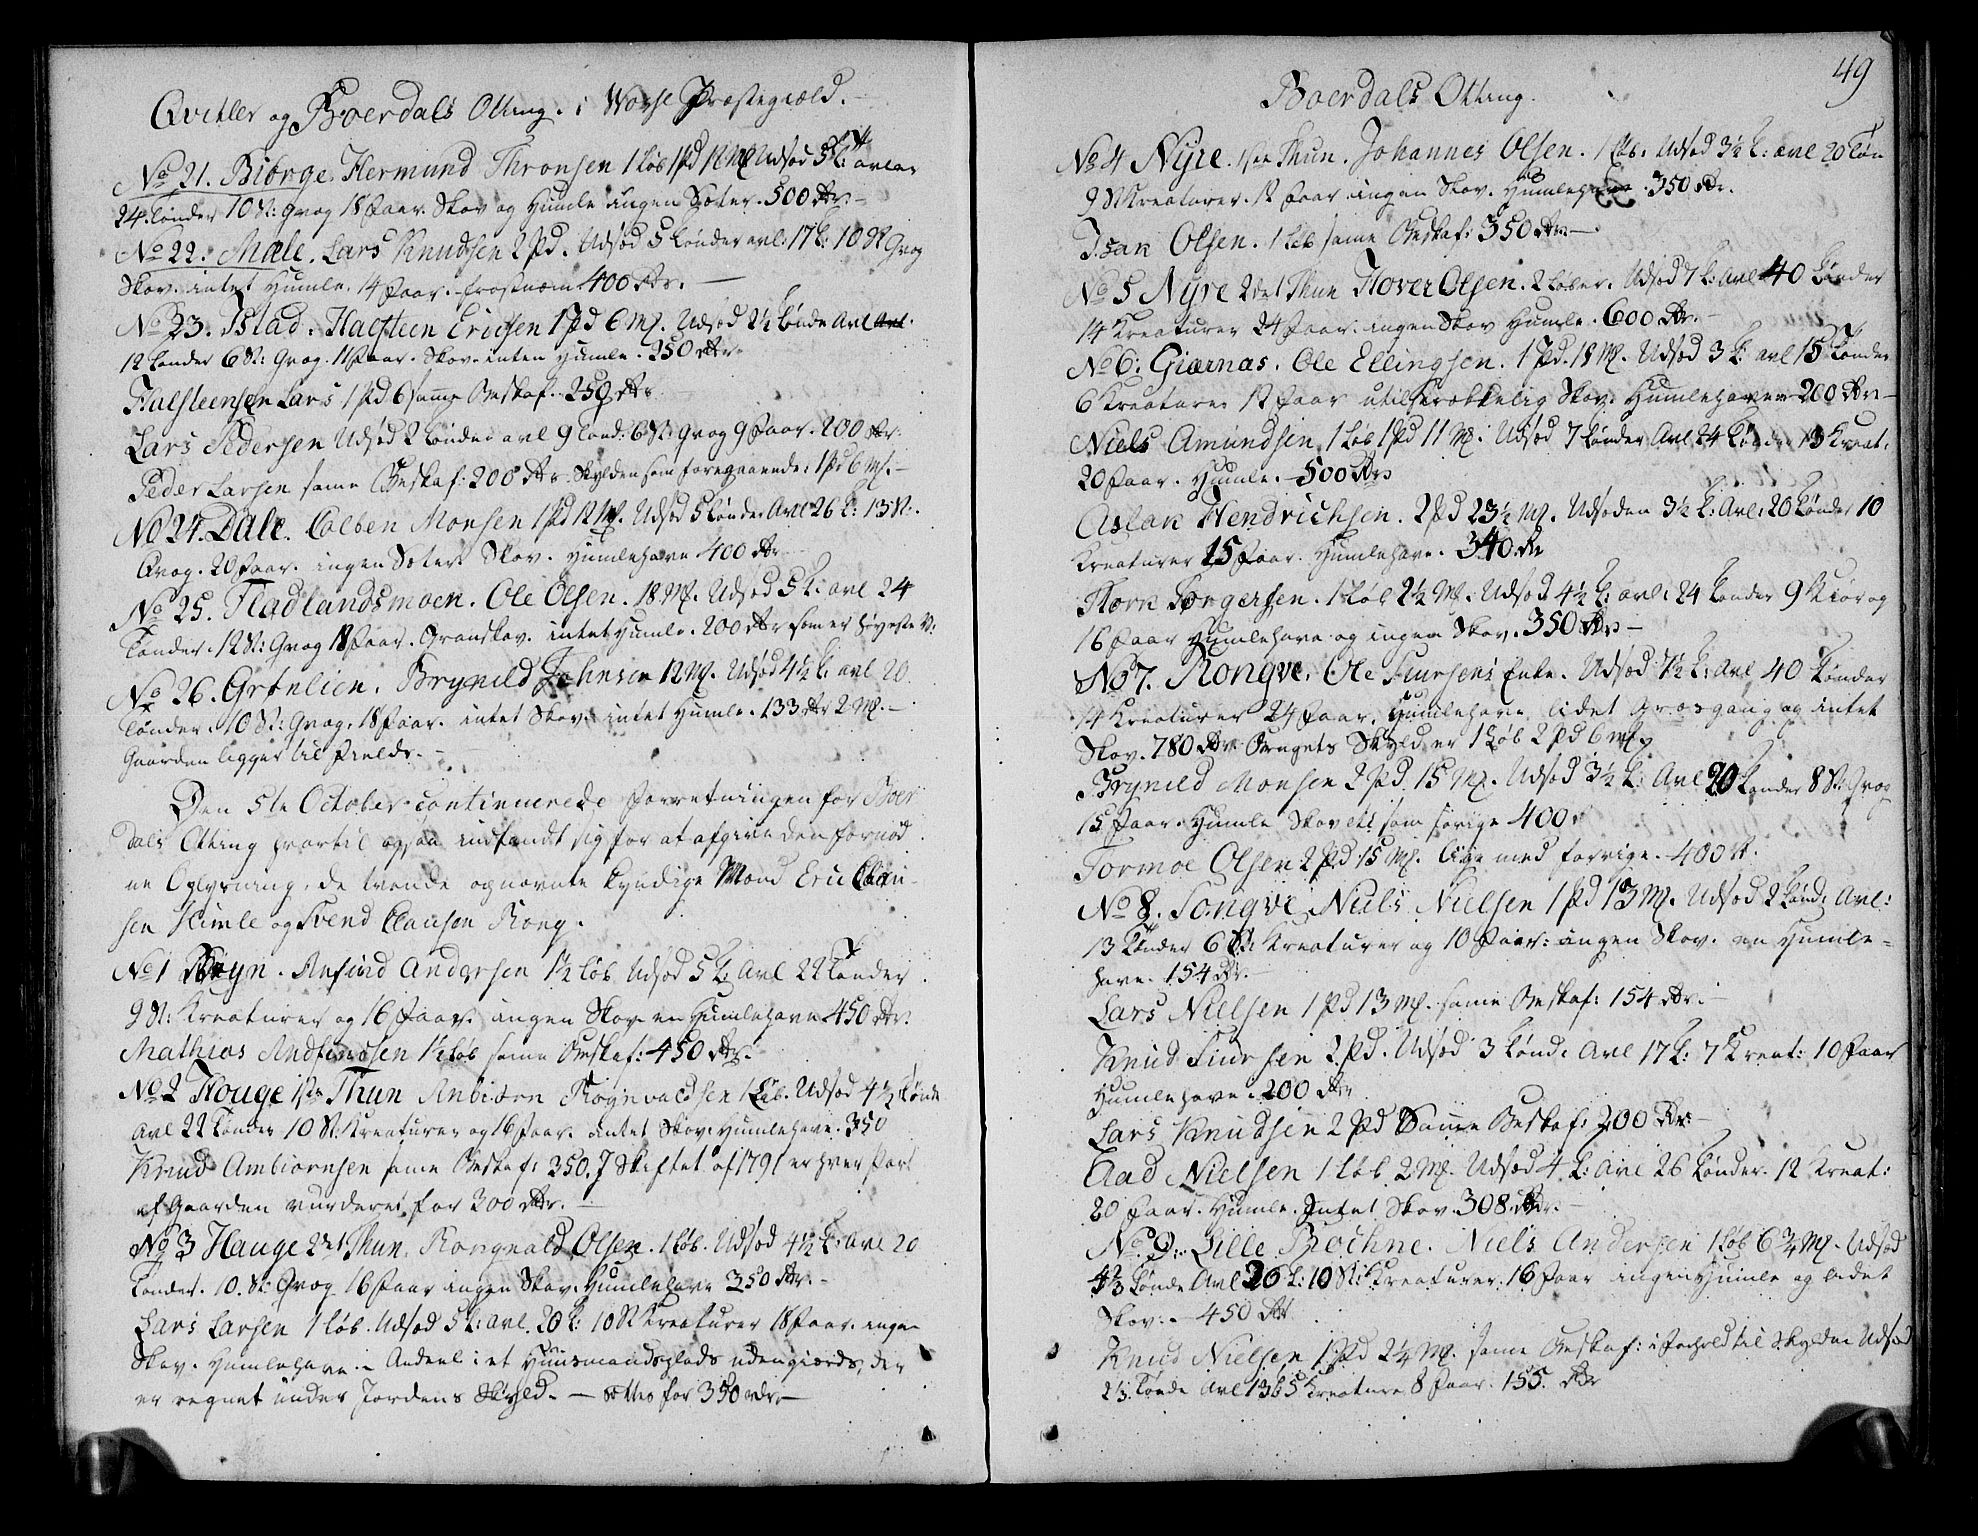 Qvitler og Boerdals Otting. i Vorse Præstegield.
No 21. Biørge. Hermund Thronsen 1 Løb 1 Pd 12 Mf Udsød 5 T: avler
24. Tønder 10 St: Qvæg 18 Faar. Skov og Humle ingen Sæter. 500 Rdr. –
No 22: Mæle. Lars Knudsen 2 Pd. Udsød 5 Tønder avl: 17 T: 10 St Qvæg
Skov. intet Humle. 14 Faar. frostnæm 400 Rdr. —
No 23. Istad. Halsteen Ericsen 1 Pd 6 Mf. Udsød 2½ Tønde Avl
12 Tønder 6 St: Qvæg. 11 Faar. Skov. inten Humle. 250 Rdr
Halsteensen Lars 1 Pd 6 samme Beskaf. 250 Rdr
Lars Pedersen Udsød 2 Tønder avl 9 Tønd: 6 St: Qvæg 9 Faar. 200 Rdr.
Peder Larsen same Beskaf: 200 Rdr. Skylden som foregaaende: 1 Pd 6 Mf. –
No 24. Dale. Colben Monsen 1 Pd 12 Mf. Udsød 5 Tønder Avl 26 T: 13 St:
Qvæg. 20 Faar. ingen Sæter Skov. Humlehave 400 Rdr
No 25. Fladlandsmoen. Ole Olsen. 18 Mf. Udsød 5 T: avl 24
Tønder. 12 St: Qvæg 18 Faar. Granskov. intet Humle. 200 Rdr som er høyeste V:
No 26. Grønlien. Brynild Johnsen 12 Mf. Udsød 4½ T: avl 20.
Tønder. 10 St: Qvæg. 18 Faar. intet Skov. intet Humle. 133 Rdr 2 Mf. –
Gaarden ligger til Fields. –
Den 5te October continuerede Forretningen for Boer
dals Otting hvortil ogsaa indfandt sig for at afgive den fornød
ne Oplysning, de tvende ognævnte kyndige Mænd Eric Clau-
sen Himle og Svend Clausen Rong.
No 1 Bryn. Anfind Andersen 1½ Løb Udsød 5 T: Avl 22 Tønder
9 St: Kreaturer og 16 Faar. ingen Skov en Humlehave 450 Rdr.
Mathias Andfindsen 1½ Løb same Beskaf: 450 Rdr. –
No 2 Houge 1ste Thun Anbiørn Rognvaldsen 1 Løb. Udsød 4½ Tønde
Avl 22 Tønder 10 St: Kreaturer og 16 Faar. intet Skov. Humlehave. 350
Knud Ambiørnsen same Beskaf: 350. J Skiftet af 1791 er hver Part
af Gaarden vurderet for 300 Rdr. —
No 3 Hauge 2det Thun. Rongnald Olsen. 1 Løb. Udsød 4½ T: Avl 20
Tønder. 10. St: Qvæg 16 Faar ingen Skov. Humlehave 350 Rdr. –
Lars Larsen 1 Løb. Udsød 5 T: avl. 20 T: 10 St Kreaturer 18 Faar. ingen
Skov. Humlehave. – Andeel i et Huusmandsplads uden giærds, der
er regnet under Jordens Skyld. — sættes for 350 Rdr. —
49
Boerdals Otting.
No 4 Nyre. 1ste Thun. Johannes Olsen. 1 Løb. Udsød 3½ T: avl 20 Tøn
9 St Kreaturer. 12 Faar ingen Skov. Humlehave. 350 Rdr.
Isak Olsen. 1 Løb same Beskaf: 350 Rdr. —
No 5 Nyre 2det Thun Hover Olsen. 2 Løber. Udsød 7 T: Avl 40 Tønder
14 Kreaturer 24 Faar. ingen Skov Humle. 600 Rdr. –
No 6: Giærnas. Ole Ellingsen. 1 Pd. 18 Mf. Udsød 3 T: avl 15 Tønder
6 Kreaturer 12 Faar utilstrækkelig Skov. Humlehaver 200 Rdr –
Niels Amundsen. 1 Løb 1 Pd 11 Mf. Udsød 7 Tønder Avl 24 Tønder 13 Kreat.
20 Faar. Humle. – 500 Rdr
Aslak Hendrichsen. 2 Pd 23½ Mf. Udsøden 3½ T: Avl: 20 Tønder 10
Kreaturer 15 Faar. Humlehave. 340 Rdr
Torgersen. 1 Løb 2½ Mf. Udsød 4½ T: avl: 24 Tønder 9 Kiør og
16 Faar Humlehave og ingen Skov. 350 Rdr –
No 7. Rongve. Ole Siursens Enke. Udsød 7½ T: Avl 40 Tønder
14 Kreaturer 24 Faar. Humlehave lidet Græsgang og intet
Skov. 780 Rdr. Brugets Skyld er 1 Løb 2 Pd 6 Mf
Brynild Monsen 2 Pd 15 Mf. Udsød 3½ T: Avl 20 Tønder 8 St: Qvæg
15 Faar. Humle Skov etc som forige 400.
Tormoe Olsen 2 Pd 15 Mf. lige med forrige. 400 R.
No 8. Songve Niels Nielsen 1 Pd 13 Mf. Udsød 2 Tønd: Avl:
13 Tønder 6 St: Kreaturer og 10 Faar: ingen Skov. en Humle-
have. 154 Rdr. –
Lars Nielsen 1 Pd 13 Mf. same Beskaf: 154 Rdr. –
Knud Siursen 2 Pd. Udsød 3 Tønd: Avl 17 T: 7 Kreat: 10 Faar
Humlehave. 200 Rdr
Lars Knudsen 2 Pd Same Beskaf: 200 Rdr. –
Aad Nielsen 1 Løb 2 Mf. Udsød 4 T: Avl 26 Tønder. 12 Kreat:
20 Faar. Humle. Intet Skov. 308. Rdr. –
No 9: Lille Rochne. Niels Andersen 1 Løb 6¾ Mf. Udsød
4⅓ Tønde Avl 26 T: 10 St: Kreaturer. 16 Faar ingen Humle og lidet
Skov: – 450 Rdr
Knud Nielsen 1 Pd 2¼ Mf. same Beskaf: i Forhold til Skylden Udsød
2⅓ Tønde Avl 13 5 Kreature 8 Faar. 155. Rdr